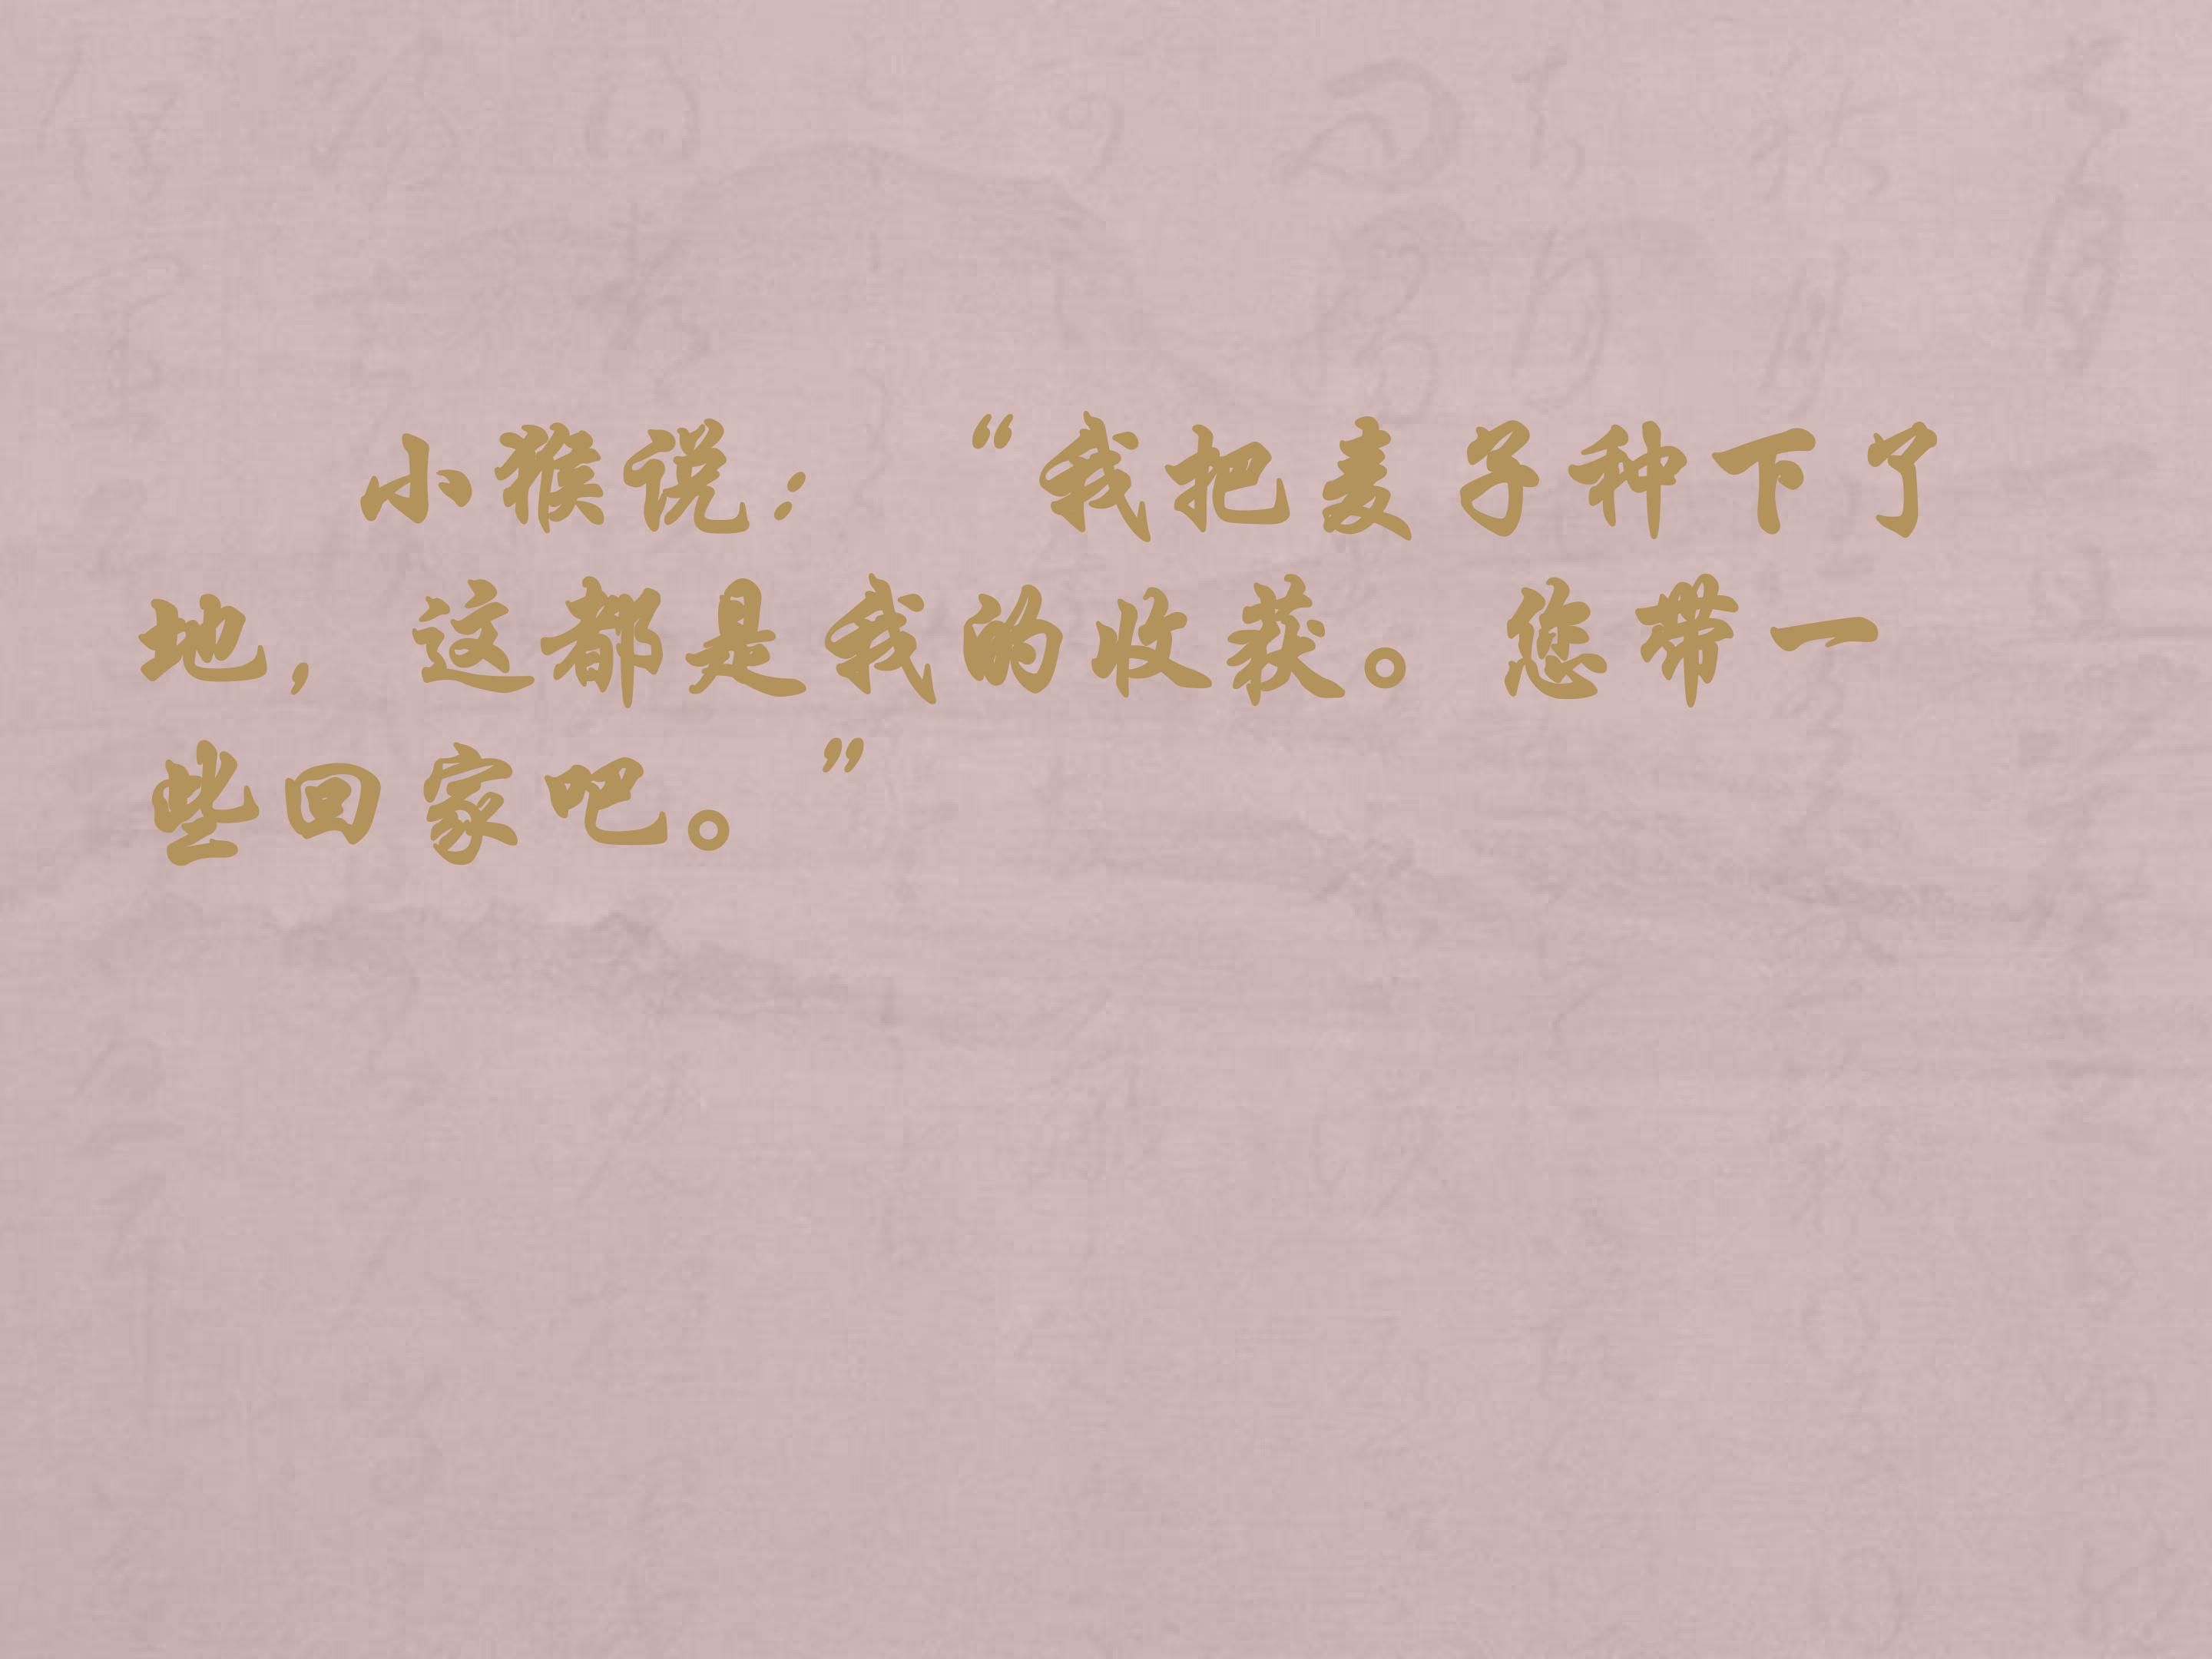 小猴说：“我把麦子种下了
地，这都是我的收获。您带一
些回家吧。”